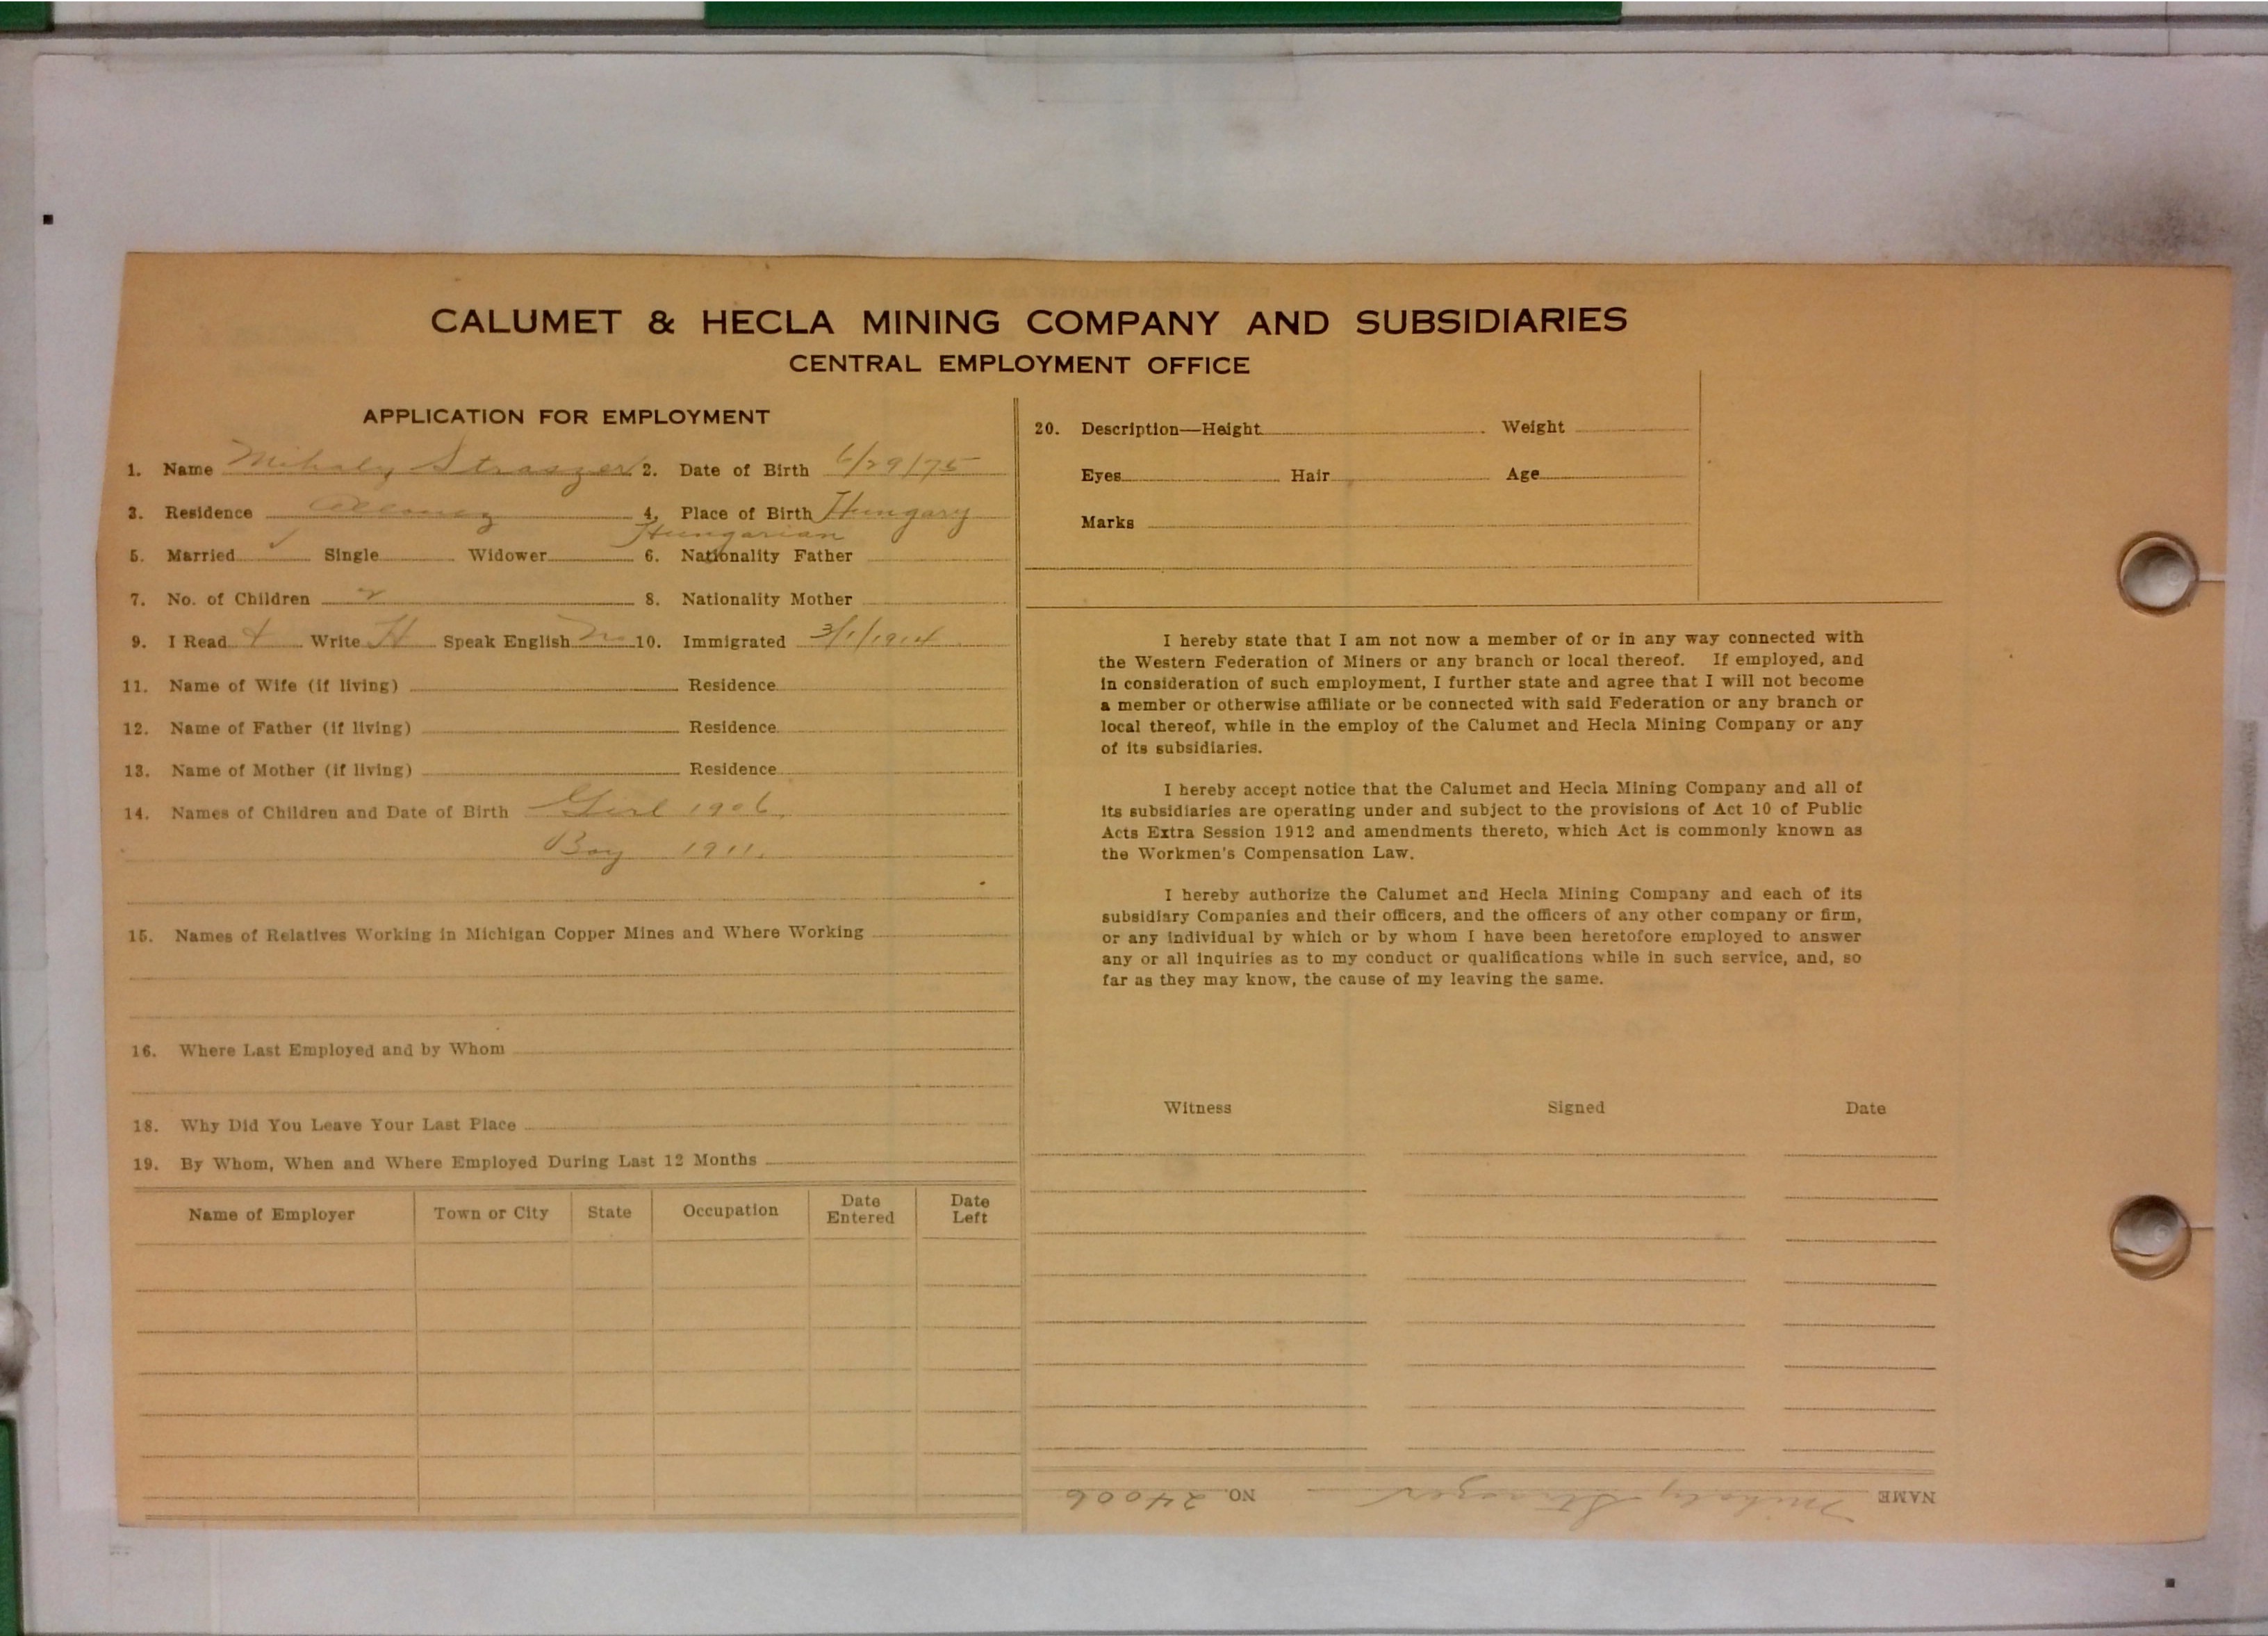 CALUMET & HECLA MINING COMPANY AND SUBSIDIARIES
CENTRAL EMPLOYMENT OFFICE
APPLICATION FOR EMPLOYMENT
1. Name Mihaly Straszer 2. Date of Birth 6/29/75
3. Residence Allouez 4. Place of Birth Hungary
Hungarian
5. Married ✓ Single Widower 6. Nationality Father
7. No. of Children 2 8. Nationality Mother
9. I Read Write H Speak English No 10. Immigrated 3/1/1914
11. Name of Wife (if living) Residence
12. Name of Father (if living) Residence
13. Name of Mother (if living) Residence
14. Names of Children and Date of Birth Girl 1906.
Boy 1911.
15. Names of Relatives Working in Michigan Copper Mines and Where Working
16. Where Last Employed and by Whom
18. Why Did You Leave Your Last Place
19. By Whom, When and Where Employed During Last 12 Months
Name of Employer Town or City State Occupation Date Entered Date Left
20. Description—Height Weight
Eyes Hair Age
Marks
I hereby state that I am not now a member of or in any way connected with
the Western Federation of Miners or any branch or local thereof. If employed, and
in consideration of such employment, I further state and agree that I will not become
a member or otherwise affiliate or be connected with said Federation or any branch or
local thereof, while in the employ of the Calumet and Hecla Mining Company or any
of its subsidiaries.
I hereby accept notice that the Calumet and Hecla Mining Company and all of
its subsidiaries are operating under and subject to the provisions of Act 10 of Public
Acts Extra Session 1912 and amendments thereto, which Act is commonly known as
the Workmen's Compensation Law.
I hereby authorize the Calumet and Hecla Mining Company and each of its
subsidiary Companies and their officers, and the officers of any other company or firm,
or any individual by which or by whom I have been heretofore employed to answer
any or all inquiries as to my conduct or qualifications while in such service, and, so
far as they may know, the cause of my leaving the same.
Witness Signed Date
NAME Mihaly Straszer NO. 24006